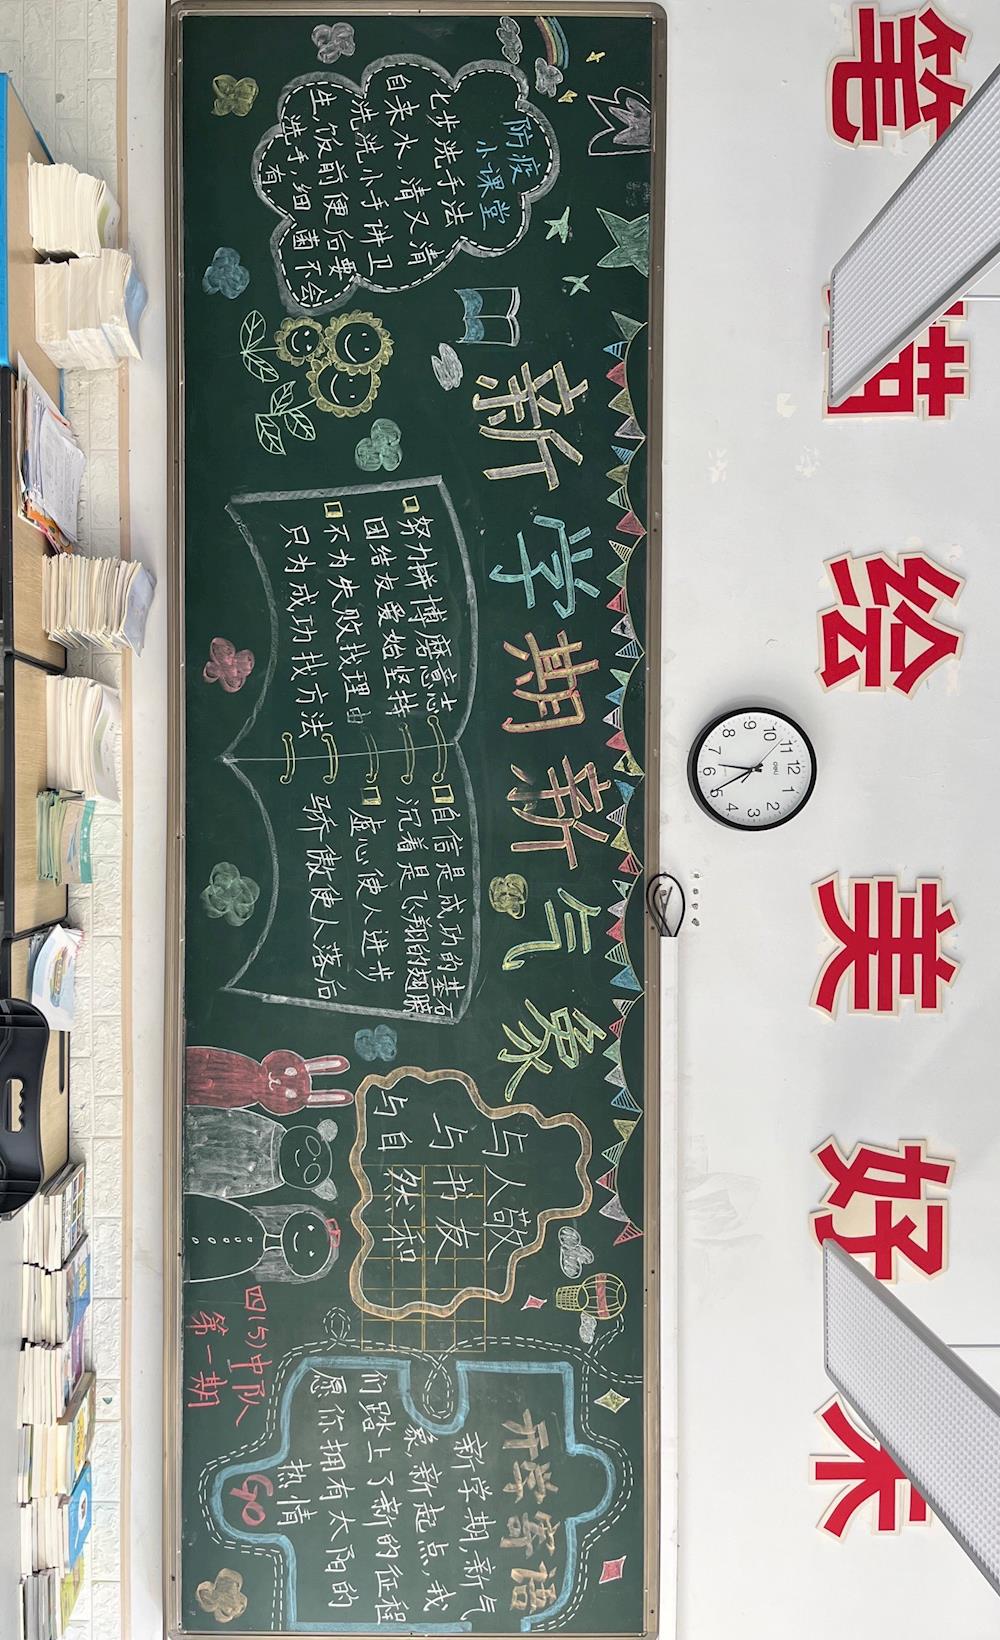 笔描绘美好未
新学期新气象
防疫
小课堂
七步洗手法
自来水,清又清
洗洗小手讲卫
生,饭前便后要
洗手,细菌不会
有.
努力拼搏磨意志
团结友爱始坚持
不为失败找理由
只为成功找方法
自信是成功的基石
沉着是飞翔的翅膀
虚心使人进步
骄傲使人落后
与人敬
与书友
与自然和
四(5)中队
第一期
开学寄语
新学期,新气
象,新起点,我
们踏上了新的征程
愿你拥有太阳的
热情
GO
deli
12
1
2
3
4
5
6
7
8
9
10
11